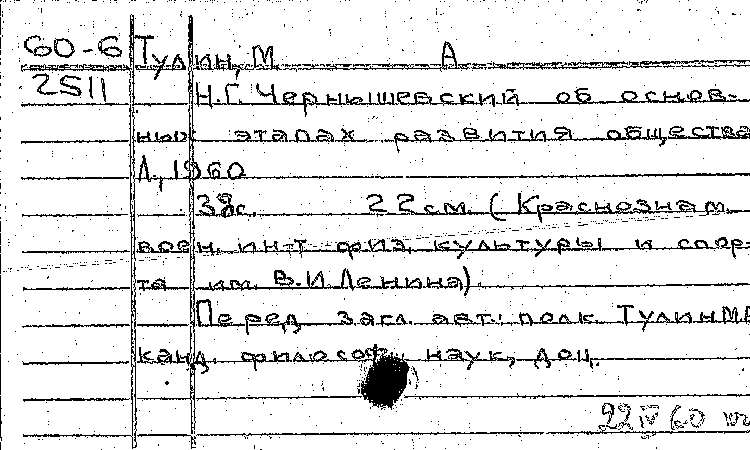 60-6 Тулин, М. А
2511 Н.Г. Чернышевский об основ-
ных этапах развития общества
Л., 1960
38с. 22 см. (Краснознам.
воен. ин-т физ. культуры и спор-
та им. В.И Ленина).
Перед загл. авт.: полк. Тулин МА
канд. философ. наук, доц.
22 IV 60